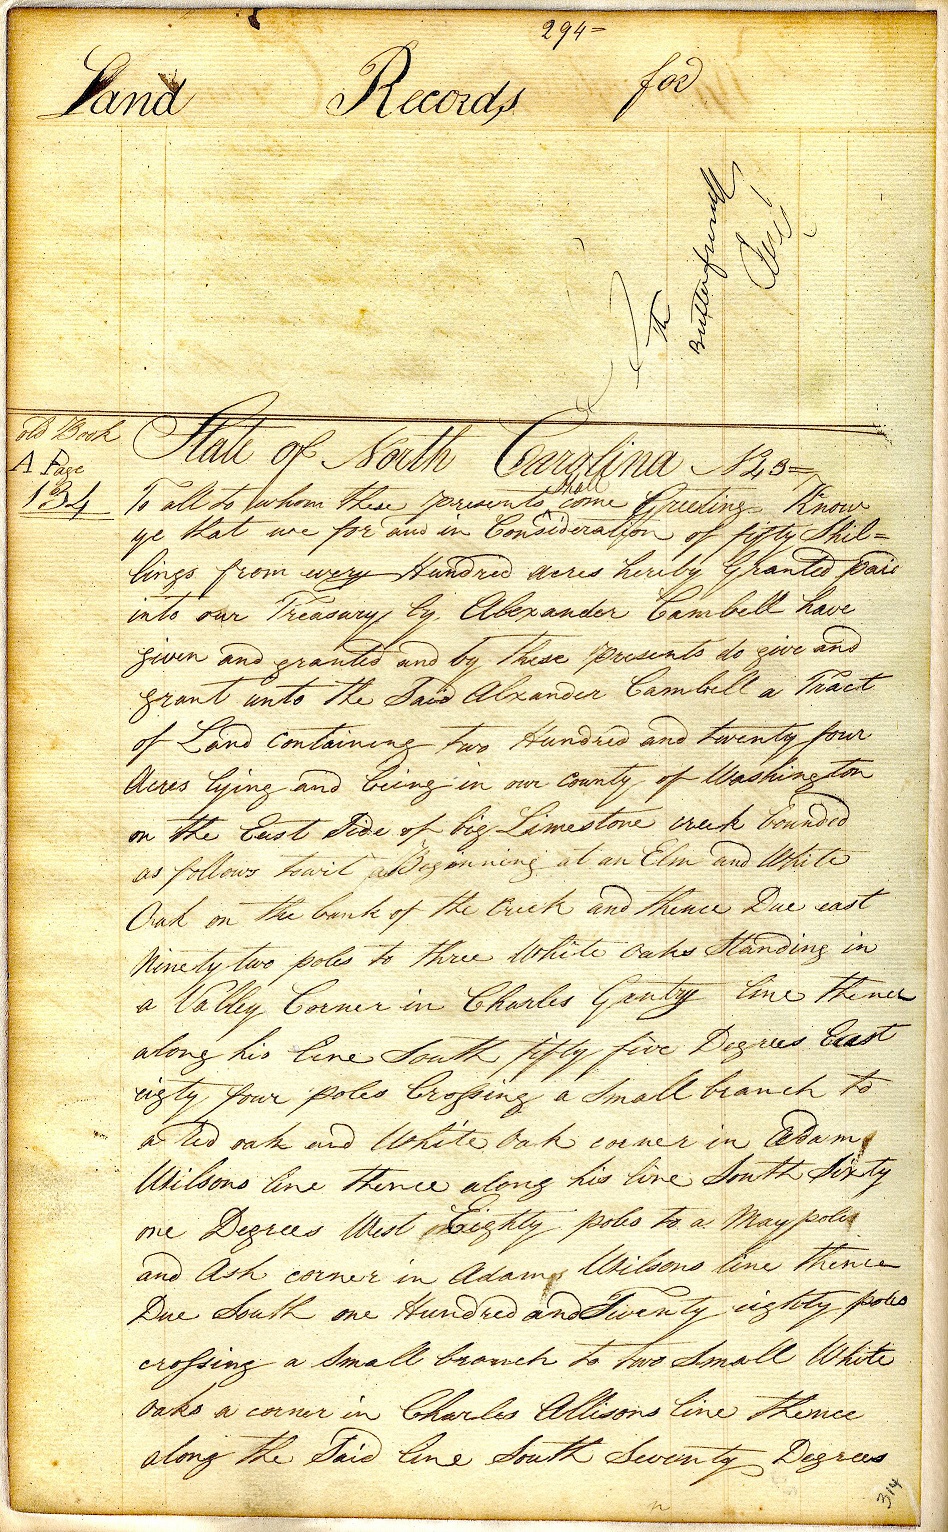 294=
Land Records for
Th
Butterfield
old Book
A Page
134
State of North Carolina No 43=
shall
To all to whom these presents come Greeting Know
ye that we for and in Consideration of fifty Shil=
lings from every Hundred acres hereby Granted paid
into our Treasury by Alexander Cambell have
given and granted and by these presents do give and
grant unto the Said Alxander Cambell a Tract
of Land containing two Hundred and twenty four
Acres lying and being in our county of Washington
on the East Side of big Limestone creek bounded
as follows towit Beginning at an Elm and White
Oak on the bank of the Creek and thence Due east
Ninety two poles to three White oaks Standing in
a Valley Corner in Charles Gentry line thence
along his line South fifty five Degrees East
eigty four poles Crossing a Small branch to
a Red oak and White Oak corner in Adam
Wilsons line thence along his line South Sixty
one Degrees West Eighty poles to a May pole
and Ash corner in Adams Wilsons line thence
Due South one Hundred and Twenty eighty poles
crossing a Small branch to two Small White
oaks a corner in Charles Allisons line thence
along the Said line South Seventy Degrees
314